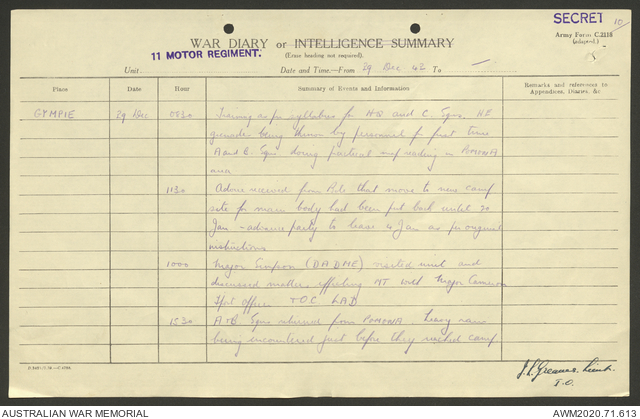 SECRET 10
Army Form C.2118
(adapted.)
WAR DIARY or INTELLIGENCE SUMMARY
(Erase heading not required).
11 MOTOR REGIMENT.
Unit
Date and Time—From 29 Dec 42 To —
Place Date Hour Summary of Events and Information Remarks and references to Appendices, Diaries, &c.
GYMPIE 29 Dec 0830 Training as per syllabus for HQ and C. Sqns. HE
grenades being thrown by personnel for first time
A and B Sqns doing practical map reading in POMONA
area
1130 Advice received from Bde that move to new camp
site for main body had been put back until 20
Jan - advance party to leave 4 Jan as per original
instructions
1000 Major Simpson (DADME) visited unit and
discussed matters affecting MT with Major Cameron
Tport officer & OC LAD
1530 A & B Sqns returned from POMONA. Heavy rain
being encountered just before they reached camp
Lieut.
I.O.
AUSTRALIAN WAR MEMORIAL AWM2020.71.613